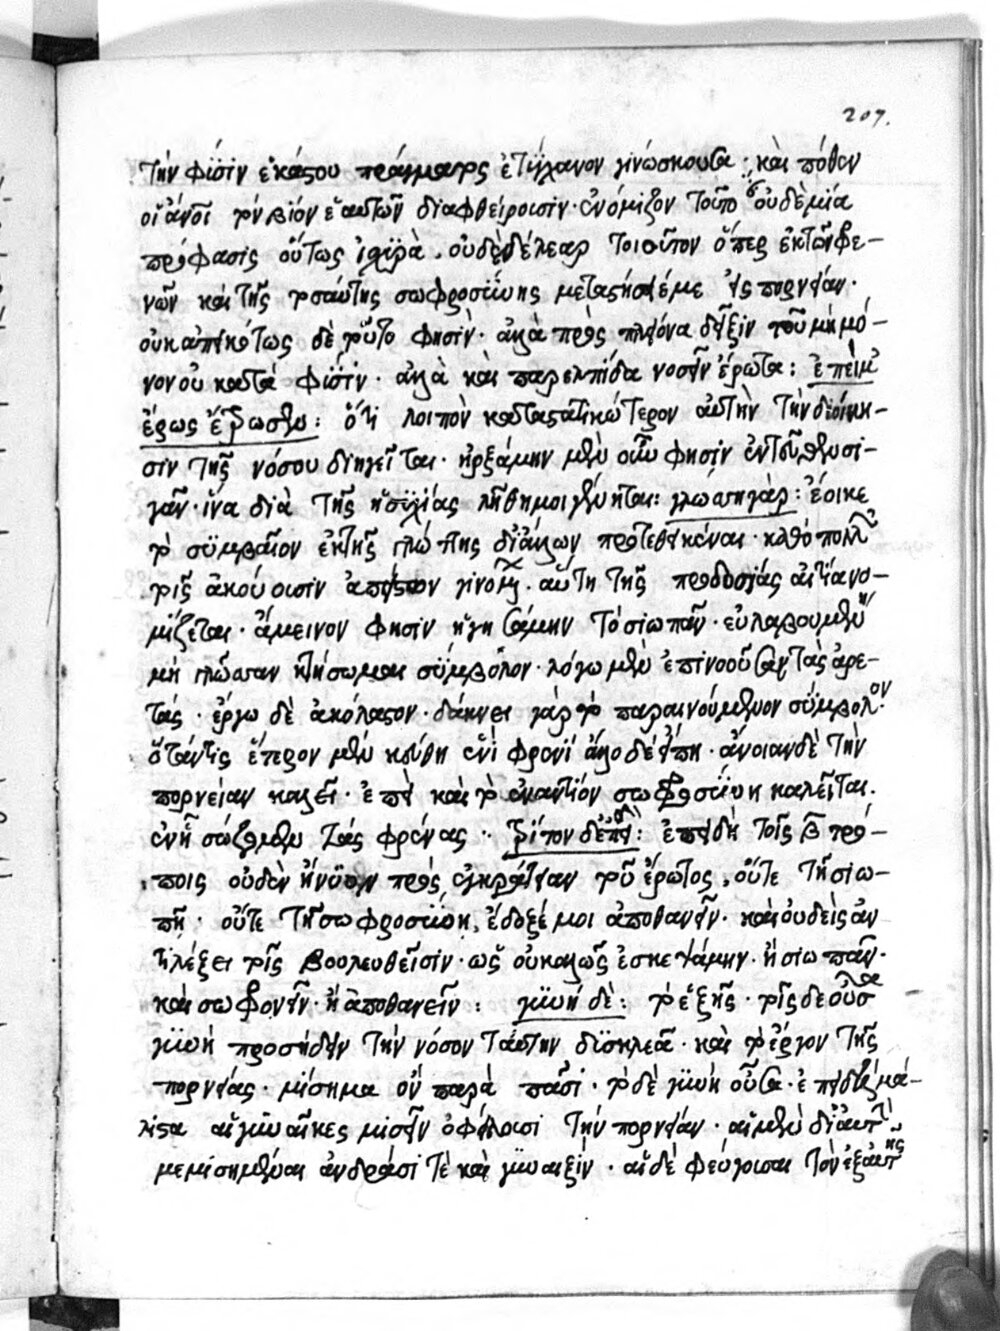 207.
τὴν φύσιν ἑκάστου πράγματος ἐτύγχανον γινώσκουσα : καὶ πόθεν
οἱ ἄνοι τὸν βίον ἑαυτῶν διαφθείρουσιν · ἐνόμιζον τοῦτο · οὐδεμία
πρόφασις οὕτως ἰσχυρὰ, οὐδὲ δέλεαρ τοιοῦτον ὅπερ ἐκ τῶν φρε-
νῶν καὶ τῆς τοσαύτης σωφροσύνης μεταστήσει ἐμὲ εἰς πορνείαν ·
οὐκ ἀπεικότως δὲ τοῦτο φησὶν · ἀλλὰ πρὸς πλείονα δεῖξιν τοῦ μὴ μό-
νον οὐ κατὰ φύσιν · ἀλλὰ καὶ παρ ἐλπίδα νοσεῖν ἔρωτα : ἐπεί μ
ἔρως ἔτρωσεν : ὅτι λοιπὸν καταστατικώτερον αὐτὴν τὴν διοίκη-
σιν τῆς νόσου διηγεῖται · ἠρξάμην μὲν οὖν φησὶν ἐντεῦθεν σι-
γᾶν · ἵνα διὰ τῆς ἡσυχίας λήθη μοι γένηται : γλώσση γὰρ : ἔοικε
τὸ συμβαῖον ἐκ τῆς γλώττης δι' ἄλλων προτεθεικέναι · καθὸ πολλ
τοῖς ἀκούουσιν ἄπιστον γινομ · αὕτη τῆς προδοσίας αἰτία νο-
μίζεται · ἄμεινον φησὶν ἡγησάμην τὸ σιωπᾶν · εὐλαβουμένη
μὴ γλῶσσαν κτήσωμαι σύμβολον · λόγω μὲν ἐπινοοῦσαν τὰς ἀρε-
τάς · ἔργω δὲ ἀκόλαστον · δάκνει γὰρ τὸ παραινούμενον σύμβολον ·
ὅταν τις ἕτερον μὲν κεύθη ἐνὶ φρενὶ ἄλλο δὲ εἴπη · ἄνοιαν δὲ τὴν
πορνείαν καλεῖ · ἐπεὶ καὶ τὸ ἐναντίον σωφροσύνη καλεῖται ·
ἐν ᾗ σώζομεν τὰς φρένας · τρίτον δ' ἐπει : ἐπειδὴ τοῖς β τρό-
ποις οὐδὲν ἤνυον πρὸς ἐγκράτειαν τοῦ ἔρωτος, οὔτε τῆ σιω-
πῆ · οὔτε τῆ σωφροσύνη, ἔδοξέ μοι ἀποθανεῖν · καὶ οὐδεὶς ἀν
τιλέξει τοῖς βουλευθεῖσιν · ὡς οὐ καλῶς ἐσκεψάμην · ἢ σιωπᾶν ·
καὶ σωφρονεῖν · ἢ ἀποθανεῖν : γυνή δὲ : τὸ ἑξῆς · τοῖς δὲ οὖσα
γυνή προσῆδειν τὴν νόσον ταύτην δυσκλεᾶ · καὶ τὸ ἔργον τῆς
πορνείας · μίσημα ὂν παρὰ πᾶσι · τὸ δὲ γυνὴ οὖσα · ἐπειδὴ μά-
λιστα αἱ γυναῖκες μισεῖν ὀφείλουσι τὴν πορνείαν · αἱ μὲν δι' αὐτ
μεμισημέναι ἀνδράσι τὲ καὶ γυναιξὶν · αἱ δὲ φεύγουσαι τὸν ἐξ αὐτῆς